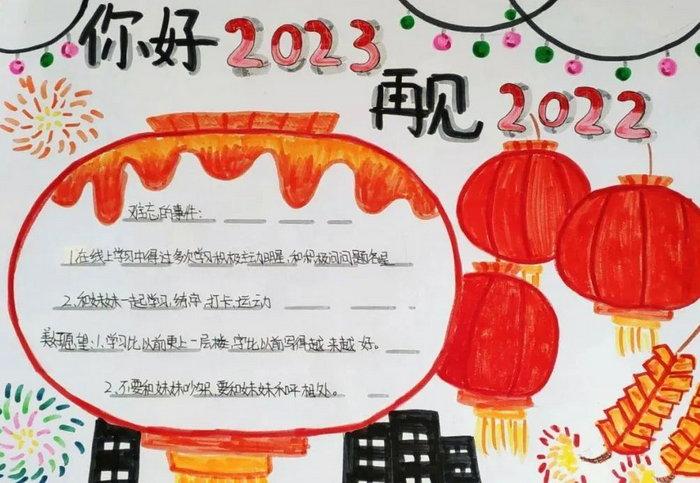 你好2023
再见2022
难忘的事件:
1.在线上学习中得过多次学习积极主动明星,和积极问问题名星
2.和妹妹一起学习,练字,打卡,运动
美好愿望:1.学习比以前更上一层楼,字比以前写得越来越好。
2.不要和妹妹吵架,要和妹妹和平相处。